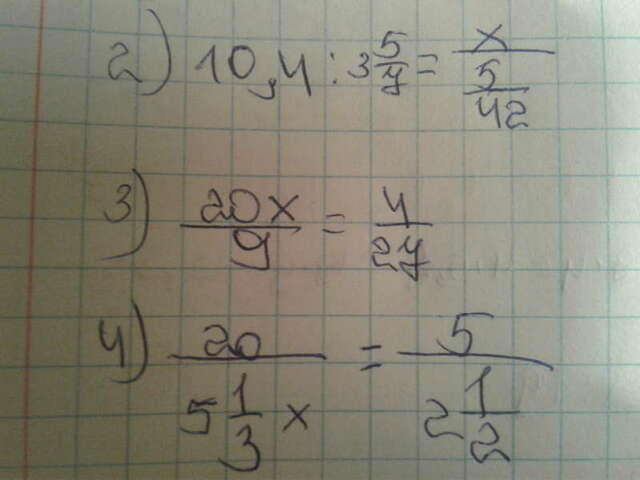 2) 10,4 : 3 5/7 = x/(5/42)
3) 20x/9 = 4/27
4) 20/(5 1/3 x) = 5/(2 1/2)